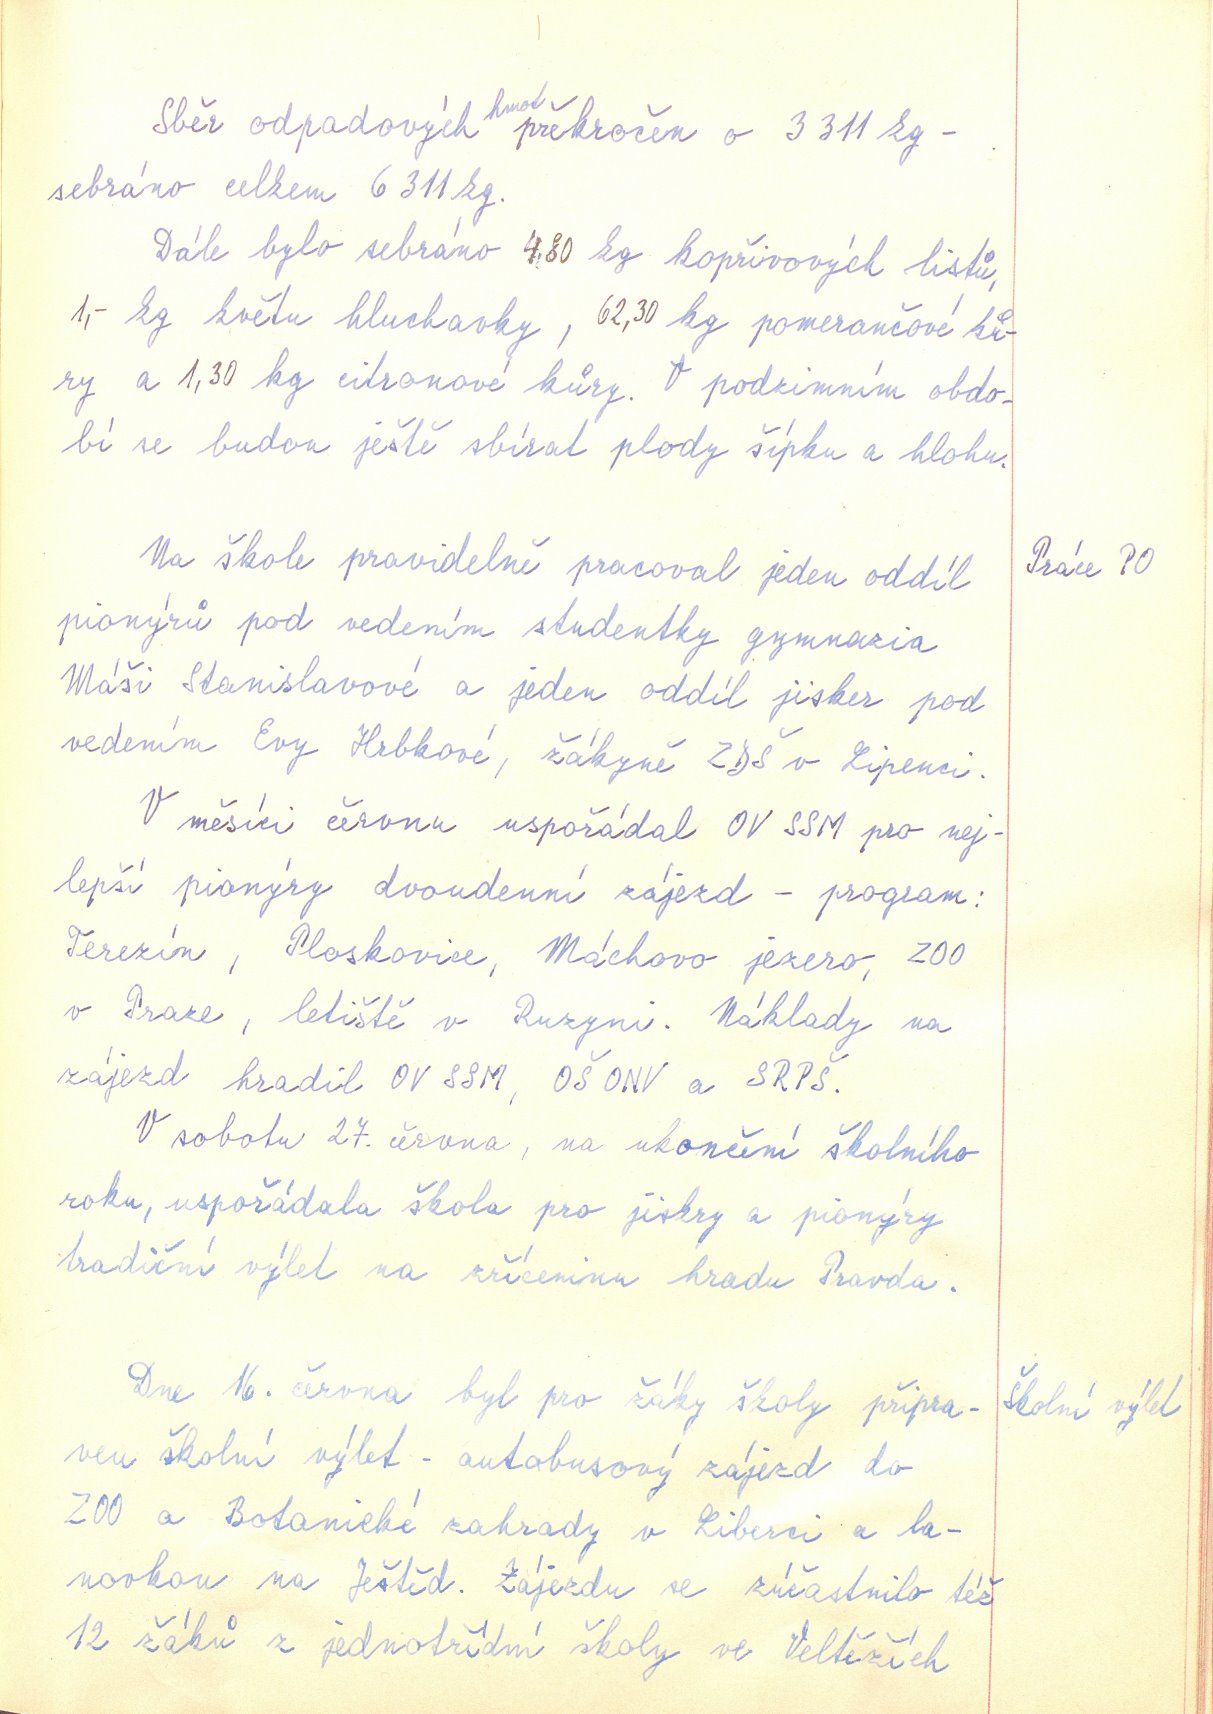 Sběr odpadových hmot překročen o 3 311 kg -
sebráno celkem 6 311 kg.
Dále bylo sebráno 4,80 kg kopřivových listů,
1,- kg květu hluchavky, 62,30 kg pomerančové ků-
ry a 1,30 kg citronové kůry. V podzimním obdo-
bí se budou ještě sbírat plody šípku a hlohu.
Práce PO
Na škole pravidelně pracoval jeden oddíl
pionýrů pod vedením studentky gymnazia
Máši Stanislavové a jeden oddíl jisker pod
vedením Evy Hrbkové, žákyně ZDŠ v Lipenci.
V měsíci červnu uspořádal OV SSM pro nej-
lepší pionýry dvoudenní zájezd - program:
Terezín, Ploskovice, Máchovo jezero, ZOO
v Praze, letiště v Ruzyni. Náklady na
zájezd hradil OV SSM, OŠ ONV a SRPŠ.
V sobotu 27. června, na ukončení školního
roku, uspořádala škola pro jiskry a pionýry
tradiční výlet na zříceninu hradu Pravda.
Školní výlet
Dne 16. června byl pro žáky školy připra-
ven školní výlet - autobusový zájezd do
ZOO a Botanické zahrady v Liberci a la-
novkou na Ještěd. Zájezdu se zúčastnilo též
12 žáků z jednotřídní školy ve Veltěžích